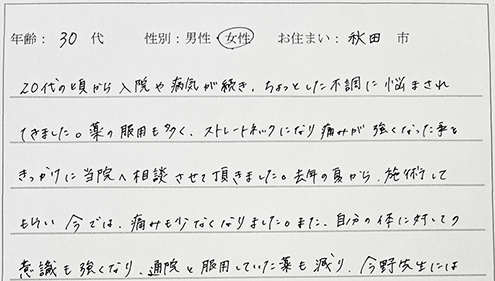 年齢：30 代　性別：男性・女性　お住まい：秋田 市
20代の頃から入院や病気が続き、ちょっとした不調に悩まされ
てきました。薬の服用も多く、ストレートネックになり痛みが強くなった事を
きっかけに当院へ相談させて頂きました。去年の夏から、施術して
もらい今では、痛みも少なくなりました。また、自分の体に対しての
意識も強くなり、通院と服用していた薬も減り、今野先生には